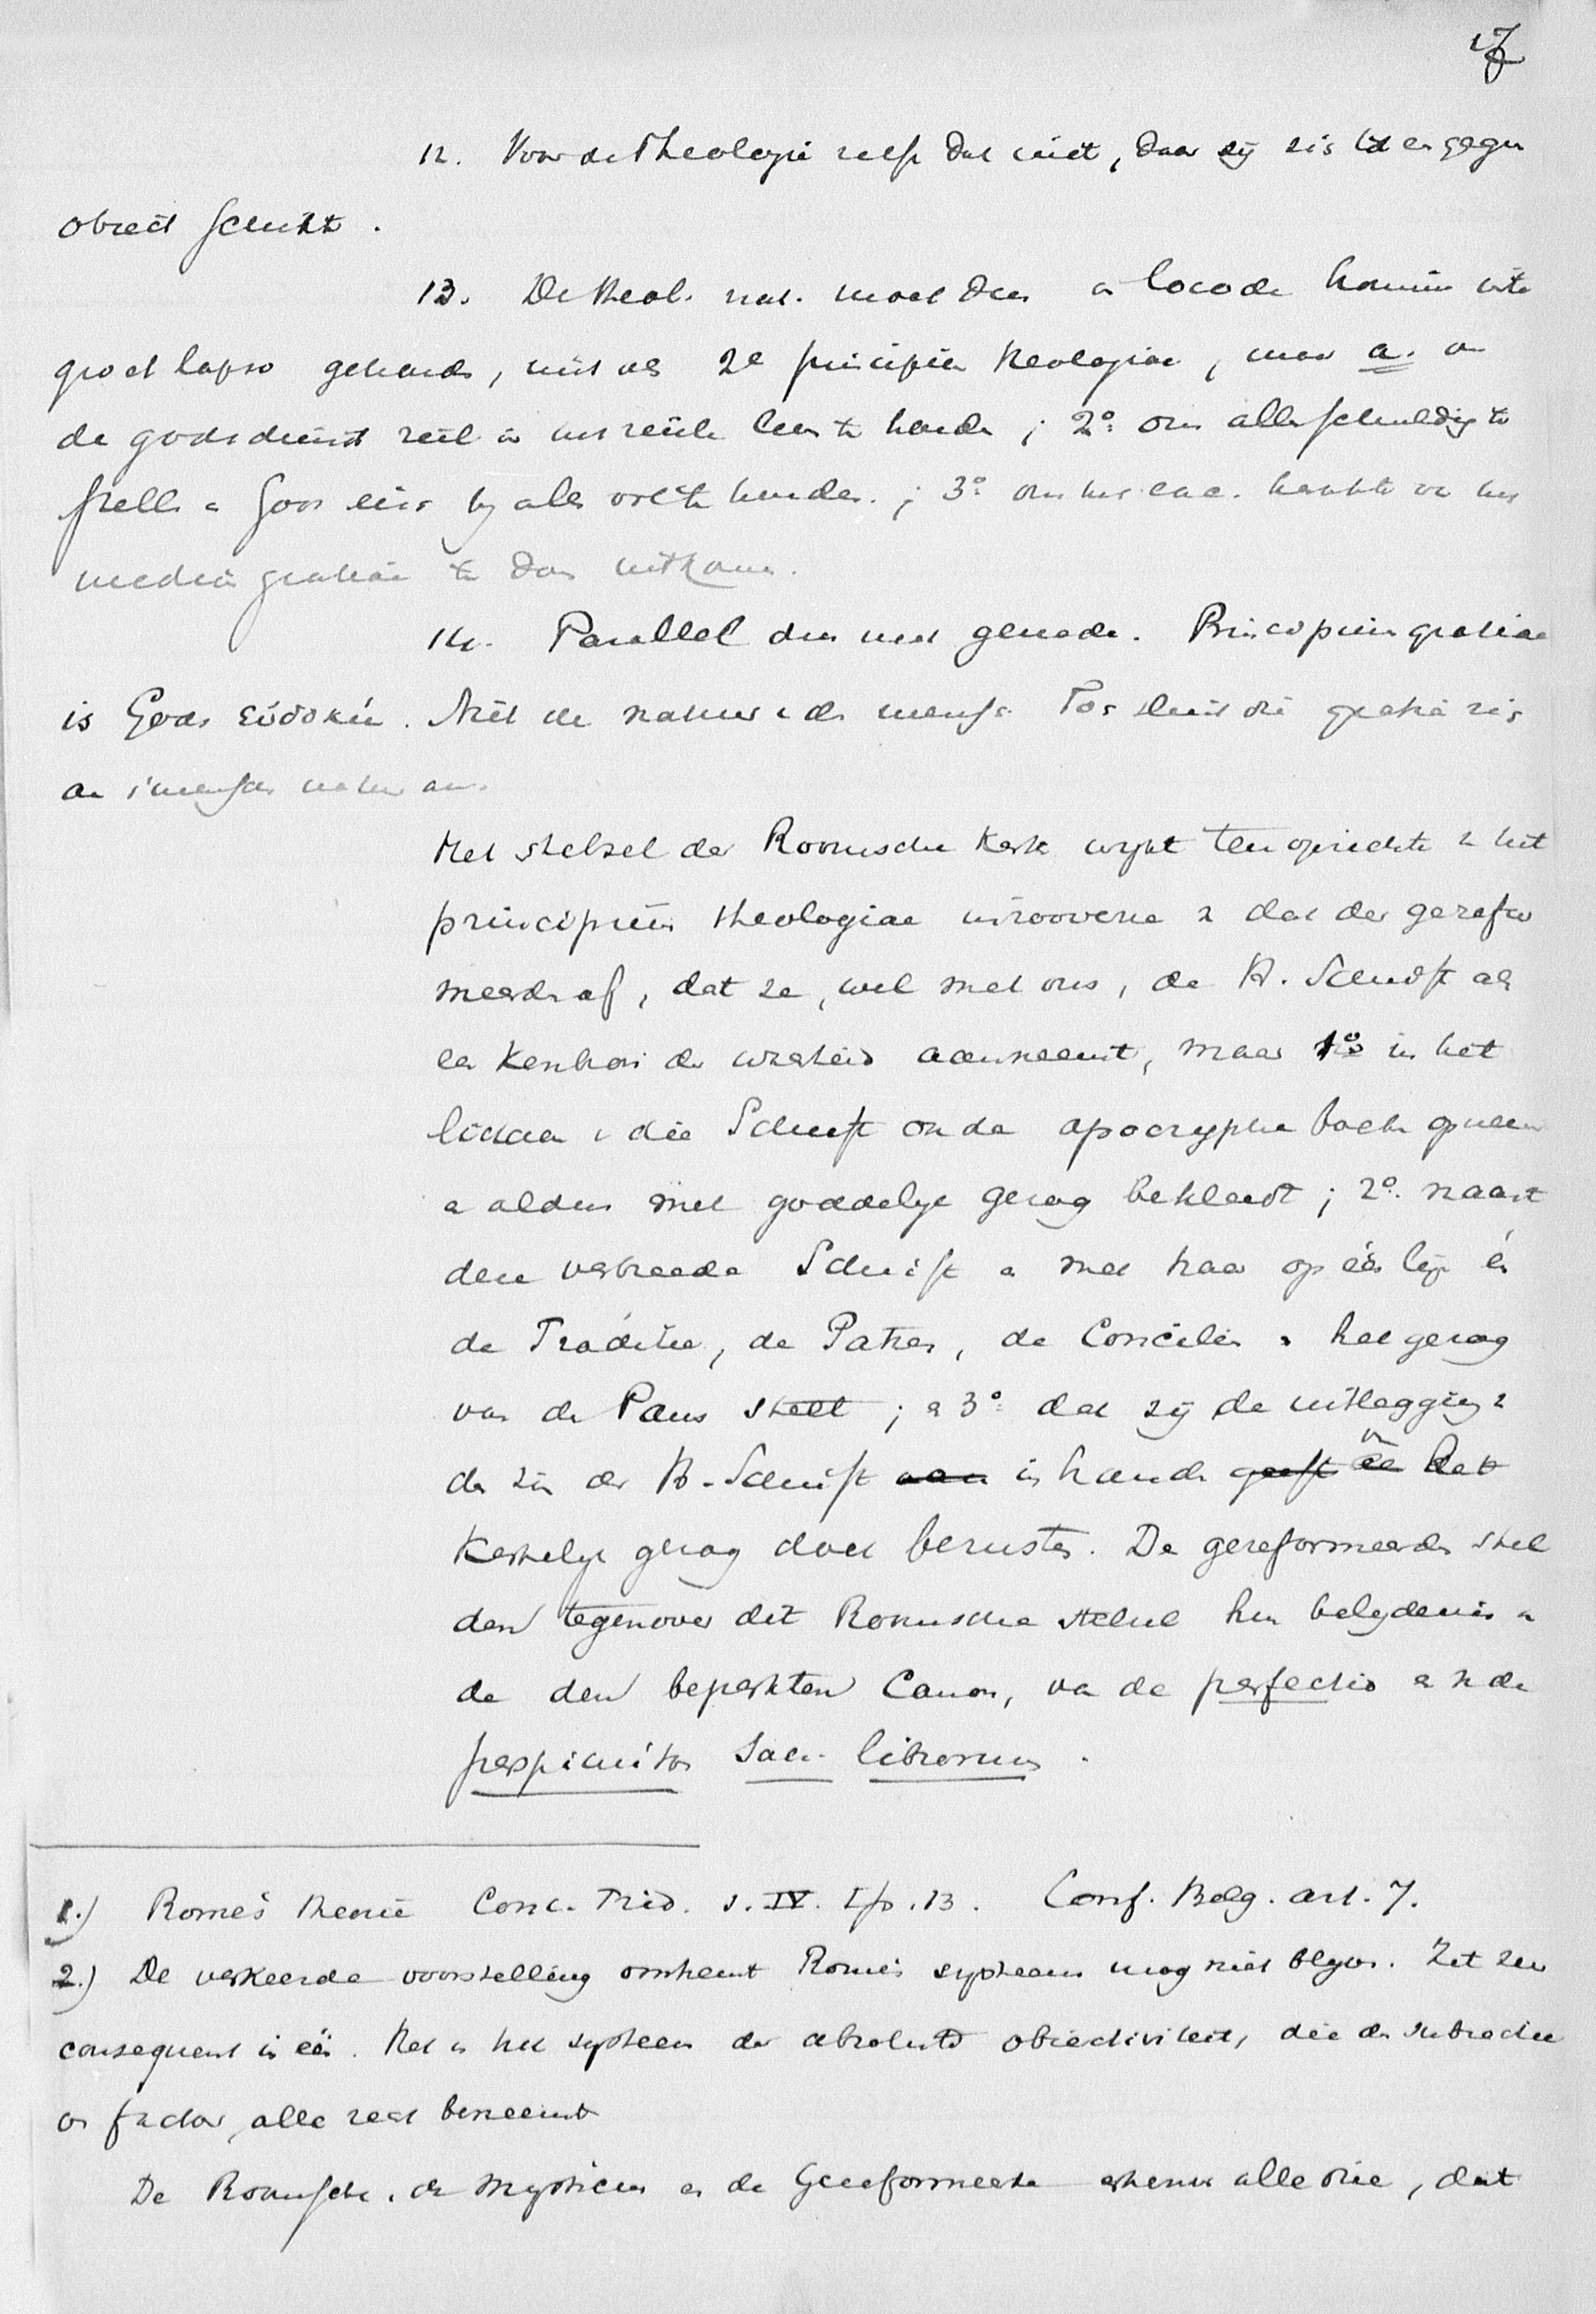 17
12. Voor de Theologie zelf dat niet, daar zij zis tot en gegen
object schikt.
13. De theol. nat. moet dus a loco de homin
quoad lapso, niet als 2e principien theologiae, maar a. om
de godsdienst reël in het reële leven te houden; 2o. om allen schuldig te
stellen bij allen te houden.; 3o. om het
media gratiae te doen uitkomen.
14. Parallel dus met genade. Principium gratiae
is Gods εὐδοκία. Niet de natuur v. d. mensch. Tos sluit die gratia zig
an 's menschen natuur an.
Het stelsel der Roomsche Kerk wykt ten opzichte v. het
principium theologiae v. dat der gerefor
meerden af, dat ze, wel met ons, de H. Schrift als
een kenbron der waarheid aanneemt, maar 1o in het
lichaam v die Schrift ook de apocryphe boeken opneemt
en aldus met goddelyk gezag bekleedt; 2o. naast
deze verbreede Schrift en met haar op één lijn én
de Traditie, de Patres, de Conciliën en het gezag
van de Paus stelt; en 3o. dat zij de uitlegging v
de zin der H. Schrift aan in handen geeft van het
Kerkelyk gezag doet berusten. De gereformeerden stel
den tegenover dit Roomsche stelsel hun belydenis v
de den beperkten Canon, van de perfectio en v. de
perspicuitas Sacr. librorum.
1.) Rome's theorie Conc. Trid. s. IV. I p. 13. Conf. Belg. art. 7.
2.) De verkeerde voorstelling omtrent Rome's systeem mag niet blyven. Zit zeer
consequent in één. Het is het systeem der absolute objectiviteit, die de subjectie
ve factor alle recht beneemt
De Roomsche, de Mysticus en de Gereformeerde erkennen alle drie, dat